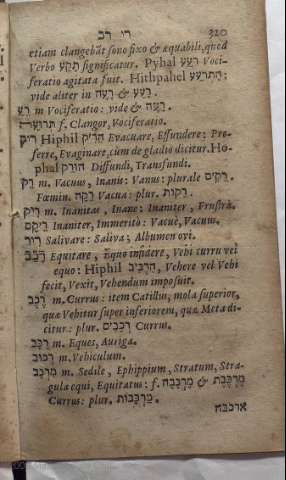 רי רכ 320
etiam clangebāt sono fixo & æquabili, quod
Verbo תקע significatur. Pyhal רעע Voci-
feratio agitata fuit. Hithpahel התרעע:
vide aliter in רעע & רעה.
רע m Vociferatio: vide & רעה.
תרועה f. Clangor, Vociferatio.
ריק Hiphil הריק Evacuare, Effundere: Pro-
ferre, Evaginare, cùm de gladio dicitur. Ho-
phal הורק Diffundi, Transfundi.
רק m. Vacuus, Inanis: Vanus: plurale רקים
Fœmin. רקה Vacua: plur. רקות.
ריק m. Inanitas, Inane: Inaniter, Frustrà.
ריקם Inaniter, Immeritò: Vacuè, Vacuum.
ריר Salivare: Saliva; Albumen ovi.
רכב Equitare, Equo insidere, Vehi curru vel
equo: Hiphil הרכיב, Vehere vel Vehi
fecit, Vexit, Vehendum imposuit.
רכב m. Currus: item Catillus, mola superior,
quæ Vehitur super inferiorem, quæ Meta di-
citur: plur. רכבים Currus.
רכב m. Eques, Auriga.
רכוב m. Vehiculum.
מרכב m. Sedile, Ephippium, Stratum, Stra-
gula equi, Equitatus: f. מרכבה & מרכבת
Currus: plur. מרכבות.
ארכבה